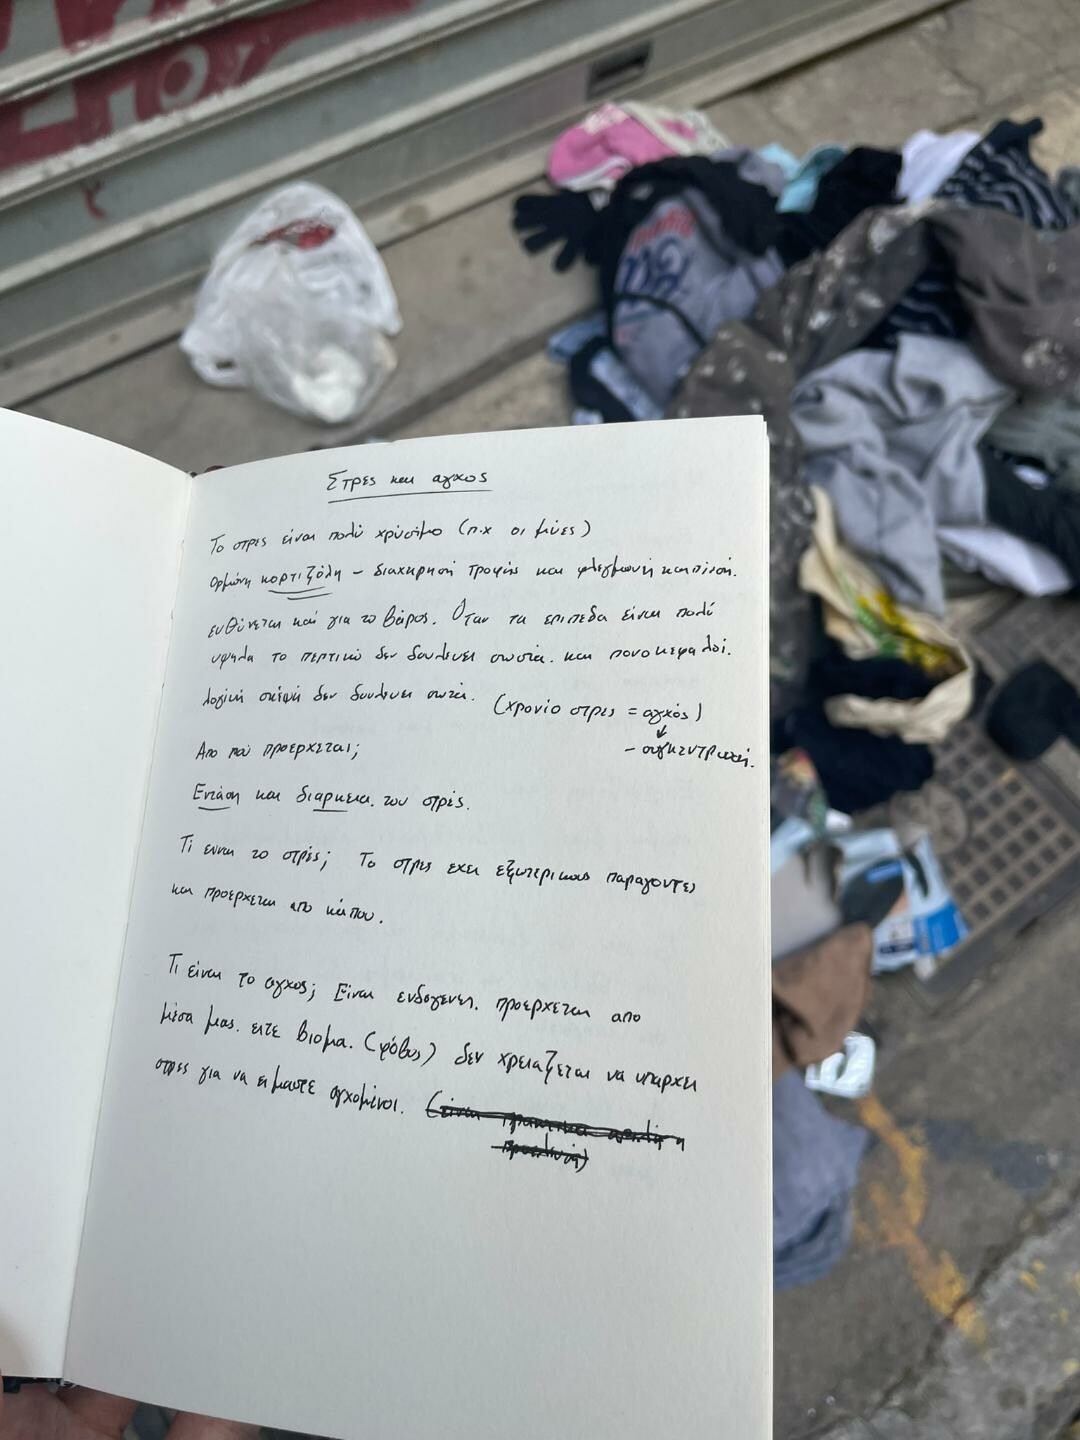 Στρες και αγχος
Το στρες είναι πολύ χρήσιμο (π.χ οι μύες)
Ορμόνη κορτιζόλη – διαχηρησή τροφής και φλεγμωνή καταπίνσή.
ευθύνεται και για το βάρος. Όταν τα επιπεδα είναι πολύ
υψηλα το πεπτικό δεν δουλευει σωστά. και πονοκεφαλοί.
λογική σκέψή δεν δουλευει σωτά.
(χρονίο στρες = αγχός)
– συγκεντρωσή.
Απο πού προερχεται;
Ενταση και διαρκεια. του στρές.
Τι ειναι το στρές; Το στρες εχει εξωτερικους παραγοντες
και προερχεται απο κάπου.
Τι είναι το αγχος; Είναι ενδογενες. προερχεται απο
μέσα μας. ειτε βιομα. (φόβος) δεν χρειαζεται να υπαρχει
στρες για να ειμαστε αγχομένοι.